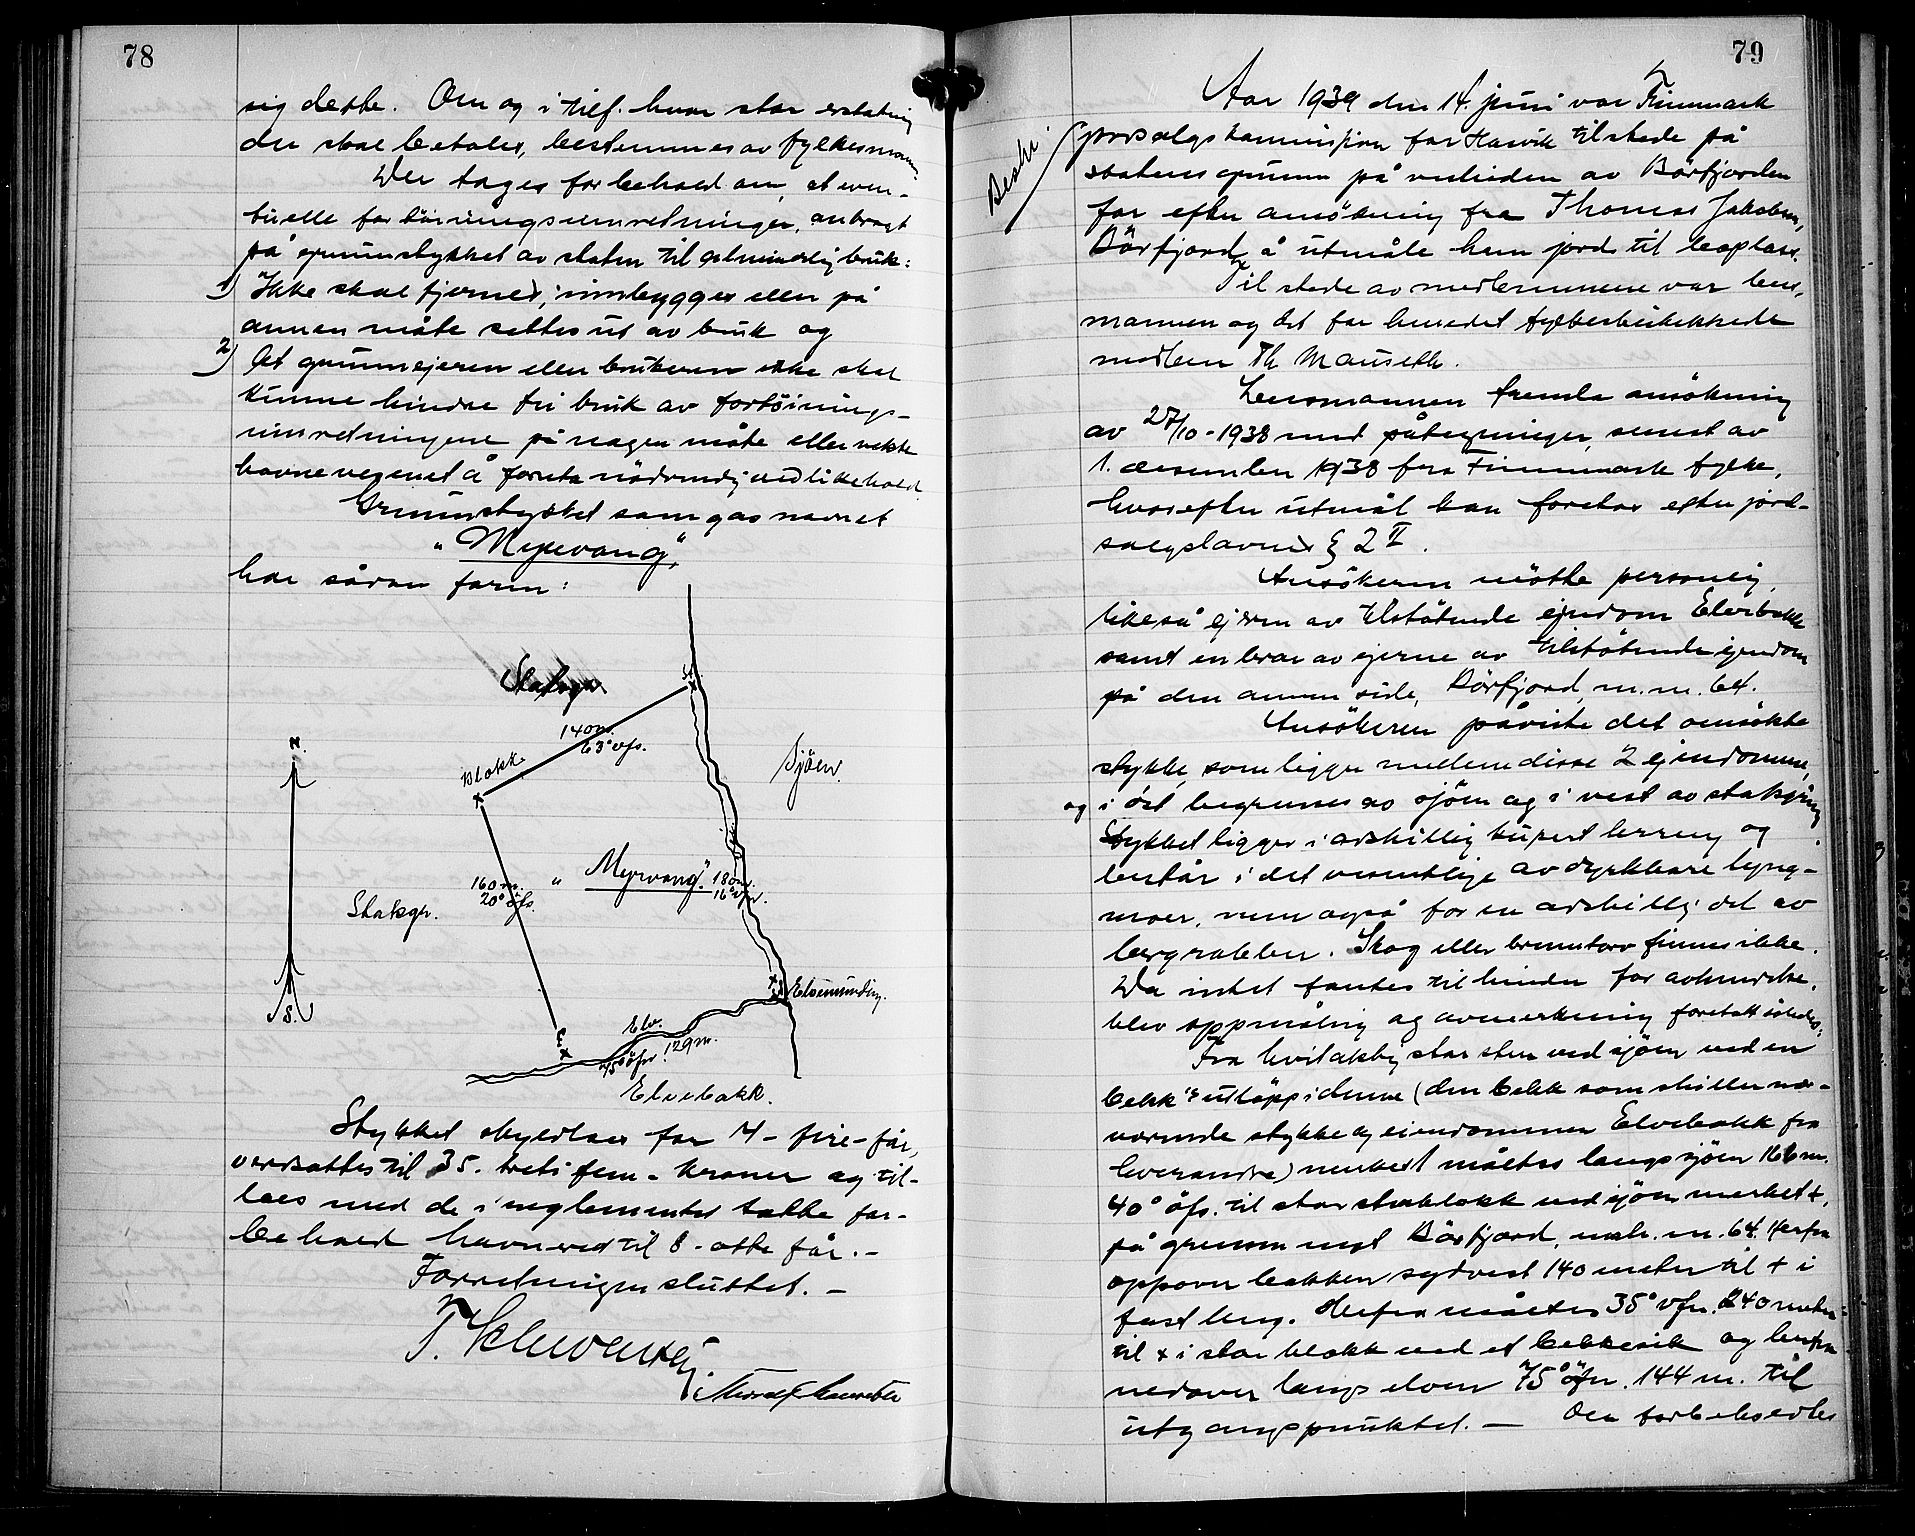 78
sig dette. Om og i tilf. hvor stor erstatning
der skal betales, bestemmes av fylkesmannen
Der tages forbehold om, at even-
tuelle fortöiningsinnretninger, anbragt
på grunnstykket av staten til almindelig bruk:
1) Ikke skal fjernes, innbygges eller på
annen måte settes ut av bruk og
2) At grunneieren eller brukeren ikke skal
kunne hindre fri bruk av fortöinings-
innretningene på nogen måte eller nekte
havnevesenet å foreta nödvendig vedlikehold.
Grunnstykket som gas navnet
"Myrvang",
har sådan form:
Statsgr.
N.
140 m.
63° vfs.
Blokk
Sjöen.
160 m.
20° öfs.
"Myrvang".
180 m.
16° vfn.
Statsgr.
S.
Elvemunding.
Elv.
75° öfn. 129 m.
Elvebakk.
Stykket skyldlaes for 4 - fire - får,
verdsattes til 35. treti fem - kroner og til-
laes med de i reglementet tatte for-
behold havneved til 8 - otte får. -
Forretningen sluttet. -

79
Aar 1939 den 14. juni var Finnmark
Beskr. jordsalgskommission for Hasvik tilstede på
statens grunn på vestsiden av Börfjorden
for efter ansökning fra Thomas Jakobsen,
Börfjord å utmåle ham jord til boplass.
Tilstede av medlemmene var lens-
mannen og det for herredet fylkesbeskikkede
medlem Th Mauseth.
Lensmannen fremla ansökning
av 27/10 - 1938 med påtegninger, senest av
1. desember 1938 fra Finnmark fylke,
hvorefter utmål kan foretas efter jord-
salgslovens § 2 II.
Ansökeren mötte personlig,
likeså ejeren av tilstötende ejendom Elvebakk
samt en bror av ejerne av tilstötende ejendom
på den annen side, Börfjord, m.m. 64.
Ansökeren påviste det ansökte
stykke, som ligger mellem disse 2 ejendomme,
og i öst begrenses av sjöen og i vest av statsgrunn
Stykket ligger i adskillig kupert terreng og
består i det vesentlige av dyrkbare lyng-
moer, men også for en adskillig del av
bergrabber. Skog eller brenntorv finnes ikke.
Da intet fantes til hinder for avhendelse,
blev oppmåling og avmerkning foretatt således:
Fra hvitaktig stor sten ved sjöen ved en
bekk's utlöpp i denne (den bekk som skiller nær-
værende stykke og eiendommen Elvebakk fra
hverandre) merket måltes langs sjöen 166 m.
40° öfs. til stor stenblokk ved sjöen merket +,
på grensen mot Börfjord, m.nr. m. 64. Herfra
oppover bakken sydvest 140 meter til + i
fast berg. Derfra måltes 35° vfn. 240 meter
til + i stor blokk ved et bekkesik og herfra
nedover langs elven 75° öfn. 144 m. til
utgangspunktet. - Der forbeholdes